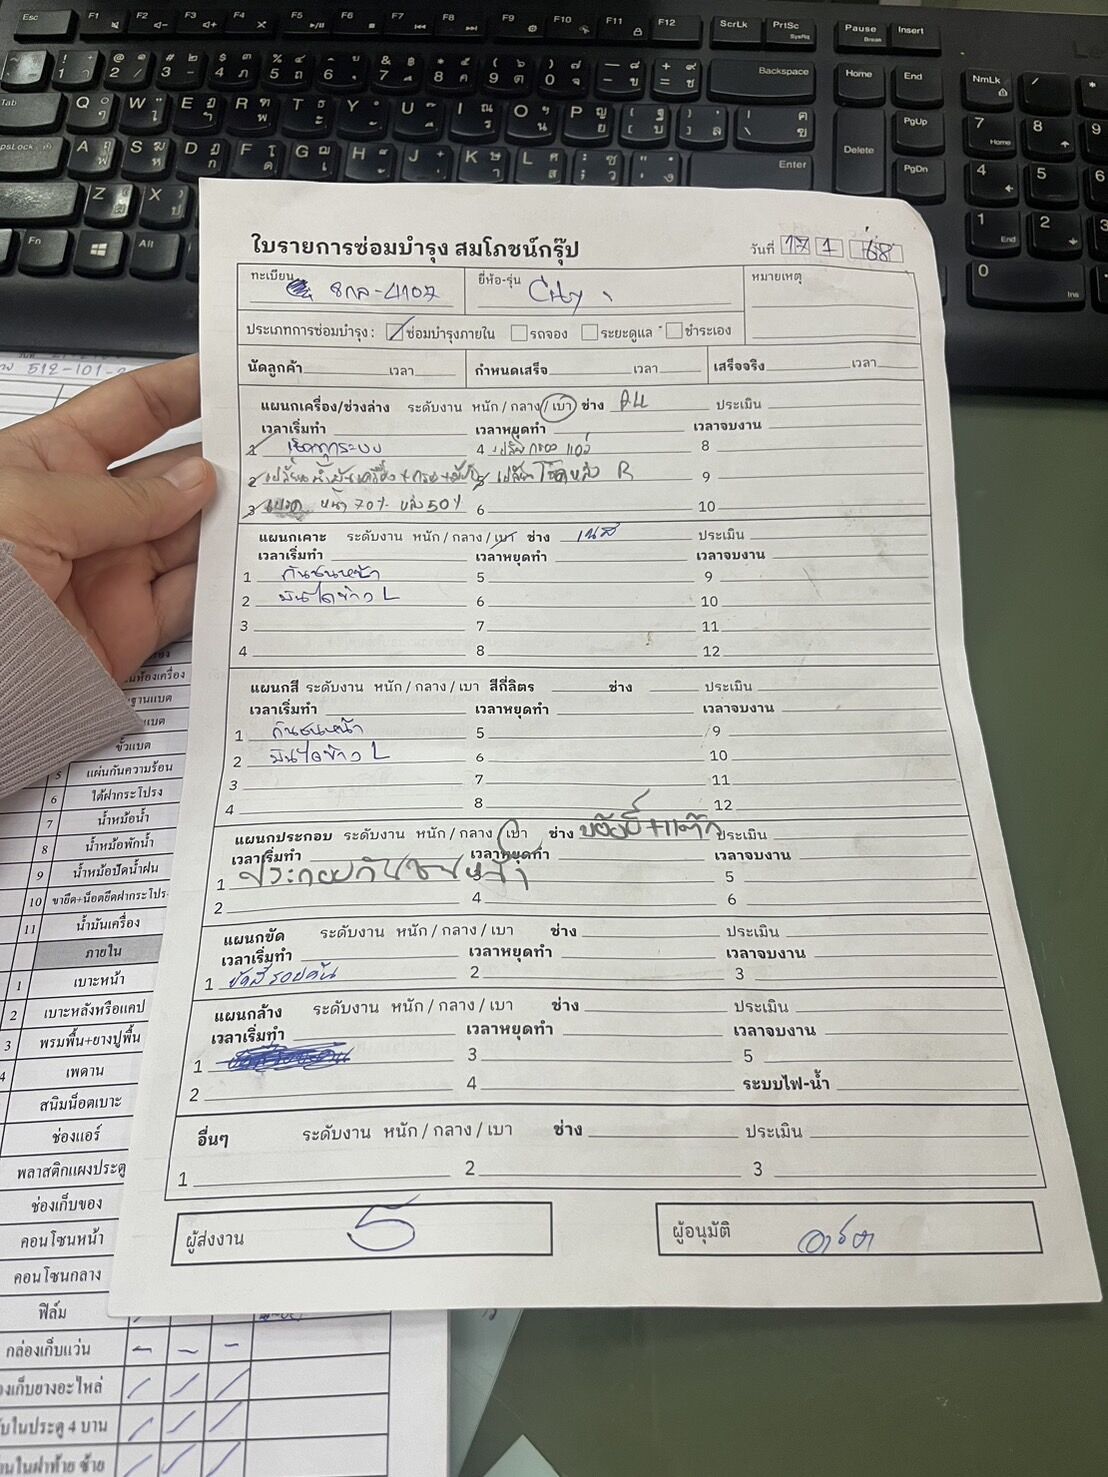 ใบรายการซ่อมบำรุง สมโภชน์กรุ๊ป
วันที่ 17 1 68
ทะเบียน 8กล-4107 ยี่ห้อ-รุ่น City หมายเหตุ
ประเภทการซ่อมบำรุง : ซ่อมบำรุงภายใน รถจอง ระยะดูแล ชำระเอง
นัดลูกค้า เวลา กำหนดเสร็จ เวลา เสร็จจริง เวลา
แผนกเครื่อง/ช่วงล่าง ระดับงาน หนัก / กลาง / เบา ช่าง ประเมิน
เวลาเริ่มทำ เวลาหยุดทำ เวลาจบงาน
1 เช็คทุกระบบ 4 เปลี่ยนกรองแอร์ 8
2 เปลี่ยนน้ำมันเครื่อง + กรอง 5 เปลี่ยนโช๊คหลัง R 9
3 เบรค หน้า 70% หลัง 50% 6 10
แผนกเคาะ ระดับงาน หนัก / กลาง / เบา ช่าง ประเมิน
เวลาเริ่มทำ เวลาหยุดทำ เวลาจบงาน
1 กันชนหน้า 5 9
2 บันไดข้าง L 6 10
3 7 11
4 8 12
แผนกสี ระดับงาน หนัก / กลาง / เบา สีกี่ลิตร ช่าง ประเมิน
เวลาเริ่มทำ เวลาหยุดทำ เวลาจบงาน
1 กันชนหน้า 5 9
2 บันไดข้าง L 6 10
3 7 11
4 8 12
แผนกประกอบ ระดับงาน หนัก / กลาง / เบา ช่าง ประเมิน
เวลาเริ่มทำ เวลาหยุดทำ เวลาจบงาน
1 ประกอบกันชนหน้า 3 5
2 4 6
แผนกขัด ระดับงาน หนัก / กลาง / เบา ช่าง ประเมิน
เวลาเริ่มทำ เวลาหยุดทำ เวลาจบงาน
1 ขัดสีรอบคัน 2 3
แผนกล้าง ระดับงาน หนัก / กลาง / เบา ช่าง ประเมิน
เวลาเริ่มทำ เวลาหยุดทำ เวลาจบงาน
1 3 5
2 4 ระบบไฟ-น้ำ
อื่นๆ ระดับงาน หนัก / กลาง / เบา ช่าง ประเมิน
1 2 3
ผู้ส่งงาน 5 ผู้อนุมัติ
512-101-
5 แผ่นกันความร้อน
6 ใต้ฝากระโปรง
7 น้ำหม้อน้ำ
8 น้ำหม้อพักน้ำ
9 น้ำหม้อปัดน้ำฝน
10 ขายึด+น็อตยึดฝากระโปร
11 น้ำมันเครื่อง
ภายใน
1 เบาะหน้า
2 เบาะหลังหรือแคป
3 พรมพื้น+ยางปูพื้น
4 เพดาน
สนิมน็อตเบาะ
ช่องแอร์
พลาสติกแผงประตู
ช่องเก็บของ
คอนโซนหน้า
คอนโซนกลาง
ฟิล์ม
กล่องเก็บแว่น
องเก็บยางอะไหล่
บในประตู 4 บาน
นในฝาท้าย ซ้าย